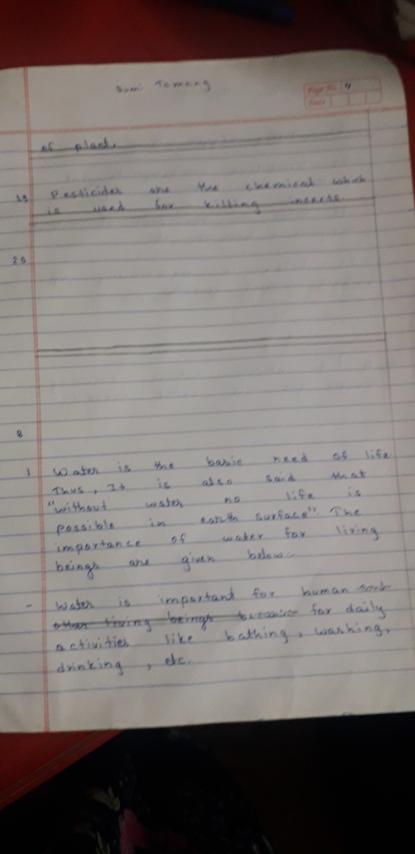 Page No. 4
Date
of plant.
19 Pesticides are the chemical which
is used for killing insects.
20
8
1 Water is the basic need of life
Thus, It is also said that
"without water no life is
possible in earth surface". The
importance of water for living
beings are given below.
- Water is important for human
other living beings because for daily
activities like bathing, washing,
drinking, etc.